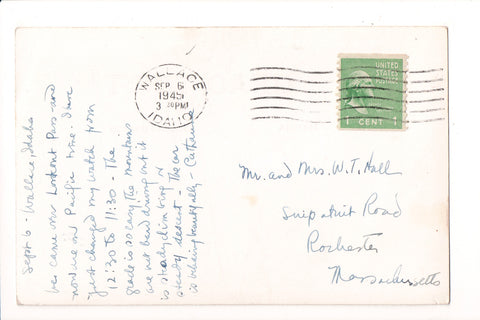 Sept 6 - Wallace, Idaho
We came over Lookout Pass and
now we're in Pacific time. I have
just changed my watch from
12:30 to 11:30 - The
grade is so easy the mountains
are not hard driving but it
is steady climbing &
steady descent - The car
is behaving beautifully - Catharine
WALLACE
SEP 6
1945
3 30 PM
IDAHO
UNITED
STATES
POSTAGE
1 CENT 1
Mr. and Mrs. W.T. Hall
Snipatuit Road
Rochester
Massachusetts